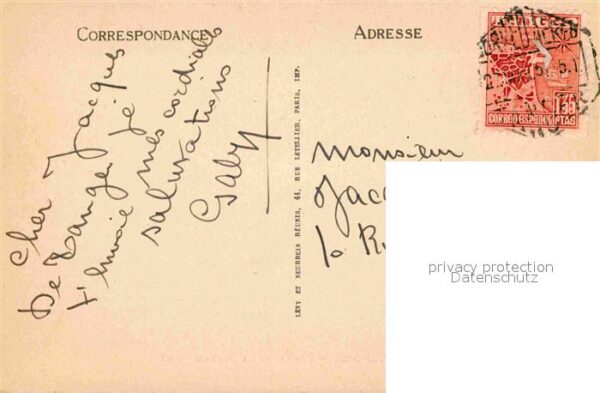 CORRESPONDANCE
ADRESSE
Cher Jacques
De Tanger je
t'Envoie mes cordiales
salutations
Gaby
LÉVY ET NEURDEIN RÉUNIS, 44, RUE LETELLIER, PARIS, IMP.
Monsieur
Jac
10 R
1'50
CORREO ESPAÑOL PTAS
privacy protection
Datenschutz